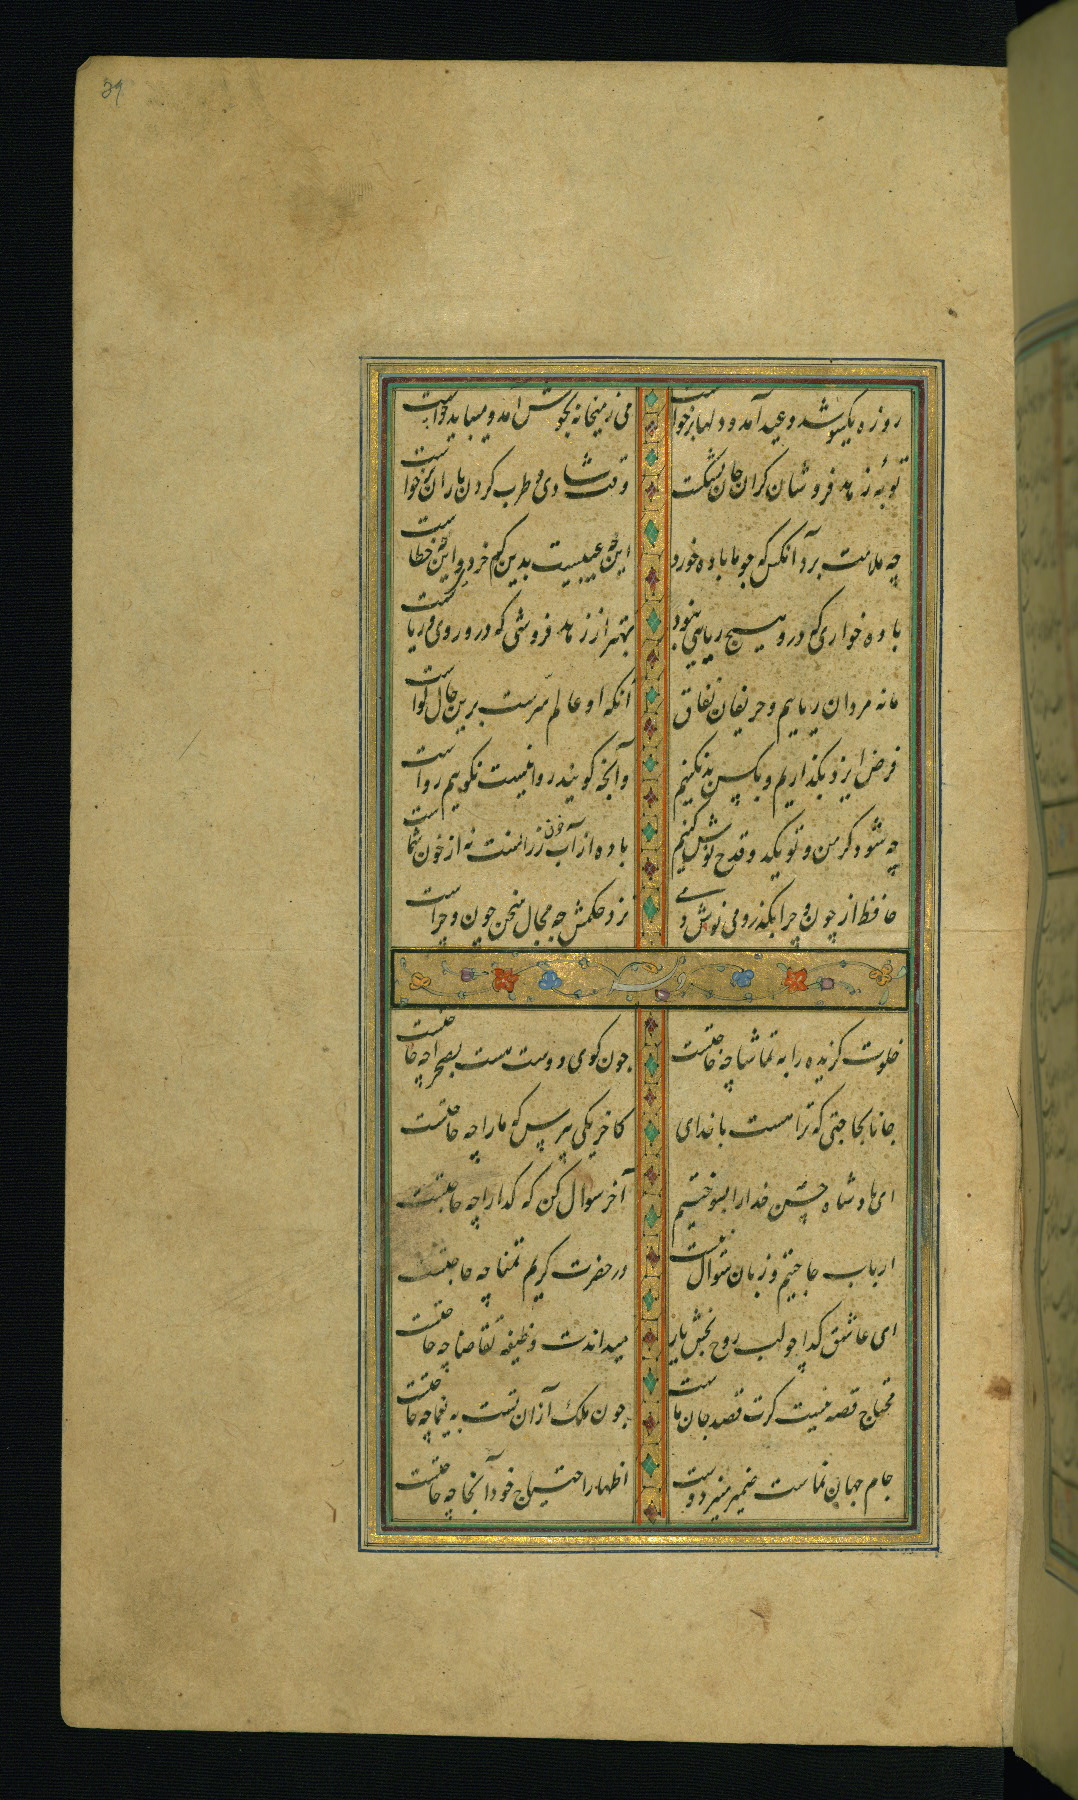 روزه یکسو شد و عید آمد و دلها برخواست می ز میخانه بجوش آمد و میباید خواست
توبهٔ زهد فروشان گران جان بشکست وقت شادی و طرب کردن یاران برخواست
چه ملامت برد آنکس که چو ما باده خورد این چه عیبست بدین کم خردی و این چه خطاست
باده خواری که درو هیچ ریایی نبود بهتر از زهد فروشی که درو روی و ریاست
ما نه مردان ریاییم و حریفان نفاق آنکه او عالم سرست برین حال گواست
فرض ایزد بگذاریم و بکس بد نکنیم وآنچه گویند روا نیست نگوییم رواست
چه شود گر من و تو یکدو قدح نوش کنیم باده از خون رزانست نه از خون شماست
حافظ از چون و چرا بگذر و می نوش دمی نزد حکمش چه مجال سخن چون و چراست
وله
خلوت گزیده را به تماشا چه حاجتست چون کوی دوست هست بصحرا چه حاجتست
جانا بحاجتی که ترا هست با خدای کاخر یکی بپرس که ما را چه حاجتست
ای پادشاه حسن خدا را بسوختیم آخر سوال کن که گدا را چه حاجتست
ارباب حاجتیم و زبان سوال نیست در حضرت کریم تمنا چه حاجتست
ای عاشق گدا چو لب روح بخش یار میداندت وظیفه تقاضا چه حاجتست
محتاج قصه نیست گرت قصد جان ماست چون ملک ازان تست به یغما چه حاجتست
جام جهان نماست ضمیر منیر دوست اظهار احتیاج خود آنجا چه حاجتست